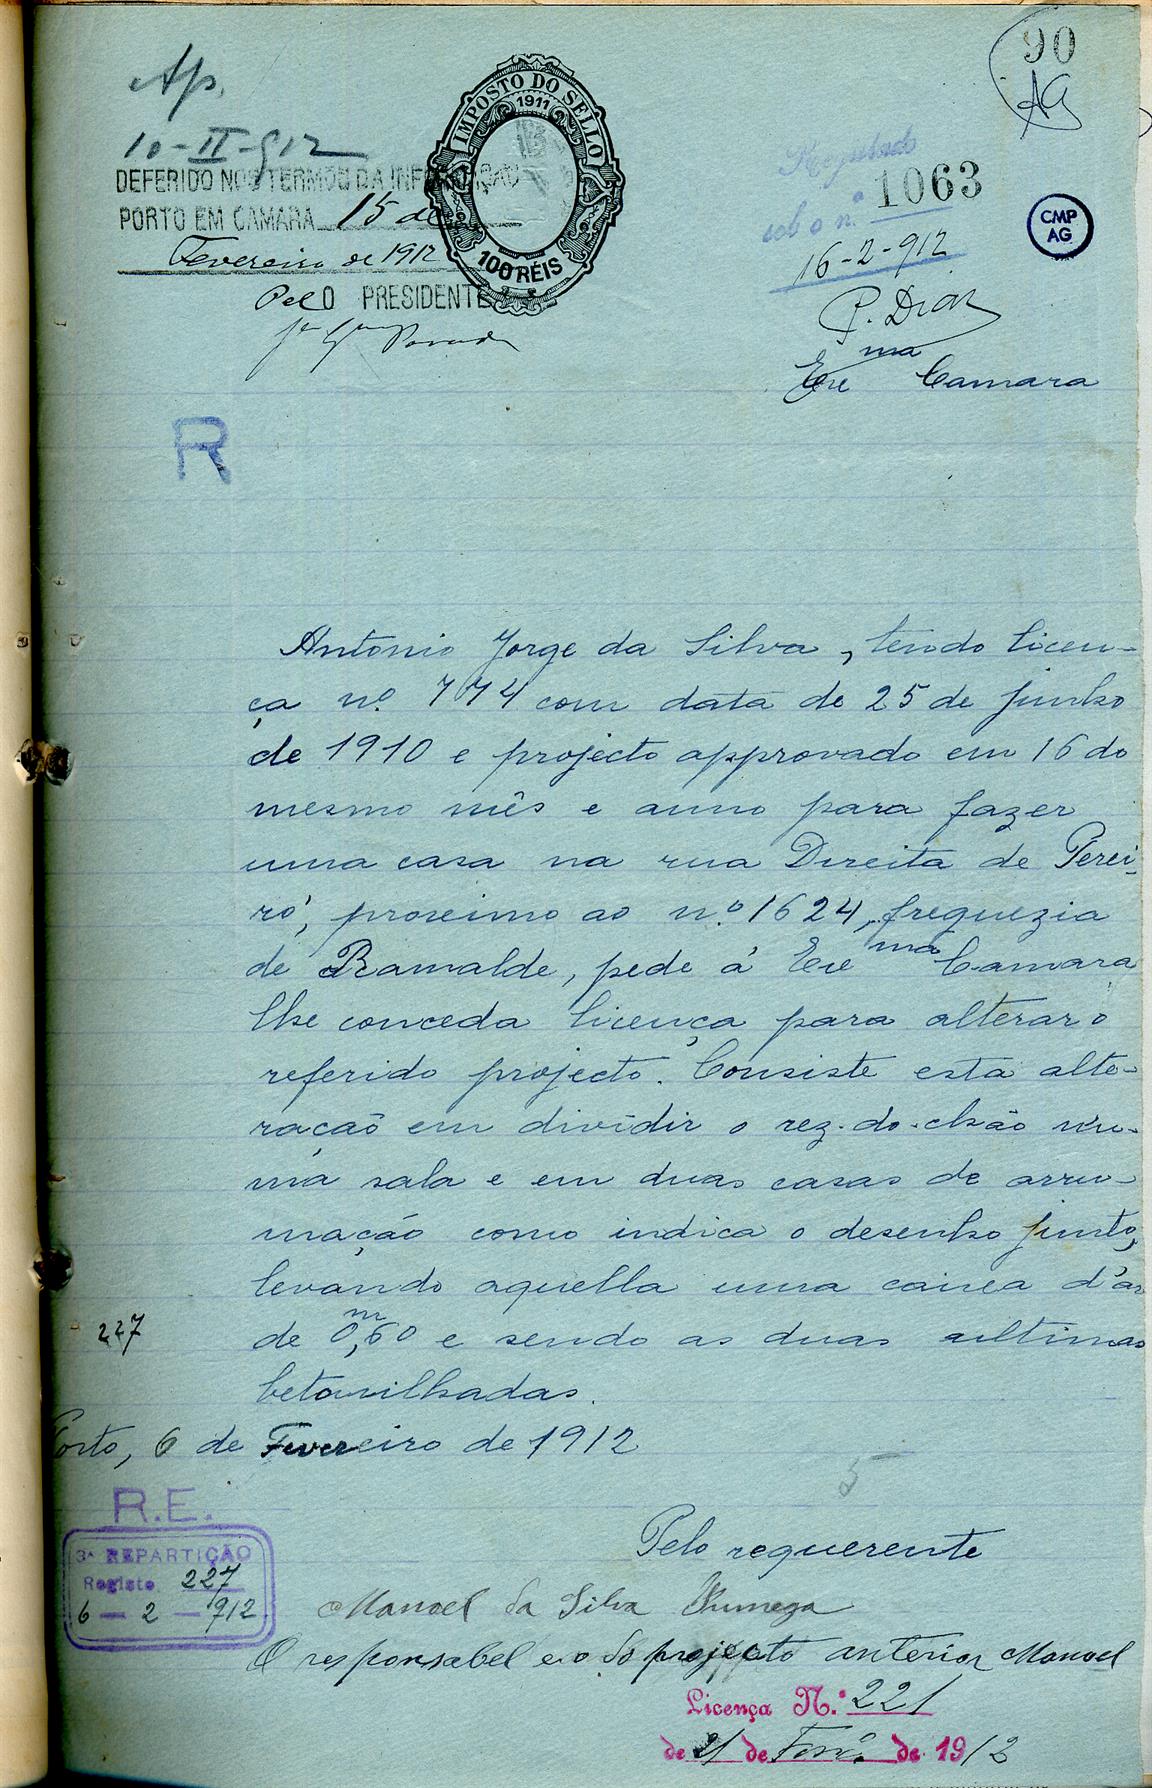 90
AG
Ap.
10-II-912
IMPOSTO DO SELLO
1911
100 RÉIS
DEFERIDO NOS TERMOS DA INFORMAÇÃO
PORTO EM CAMARA 15 de
Fevereiro de 1912
Pel O PRESIDENTE
Registado
sob o n.º 1063
16-2-912
P. Dias
CMP
AG
Exma Camara
R
Antonio Jorge da Silva, tendo licen-
ça nº. 774 com data de 25 de junho
de 1910 e projecto approvado em 16 do
mesmo mês e anno para fazer
uma casa na rua Direita de Perei-
ró, proximo ao n.º 1624, freguezia
de Ramalde, pede á Exma Camara
lhe conceda licença para alterar o
referido projecto. Consiste esta alte-
ração em dividir o rez-do-chão nu-
ma sala e em duas casas de arru-
mação como indica o desenho junto,
levando aquella uma caixa d'ar
de 0,m60 e sendo as duas ultimas
betonilhadas.
227
Porto, 6 de Fevereiro de 1912
5
R.E.
3ª REPARTIÇÃO
Registo 227
6 - 2 - 912
Pelo requerente
Manoel da Silva
O responsabel e o do projecto anterior Manoel
Licença N.º 221
de 21 de Fev.º de 1912